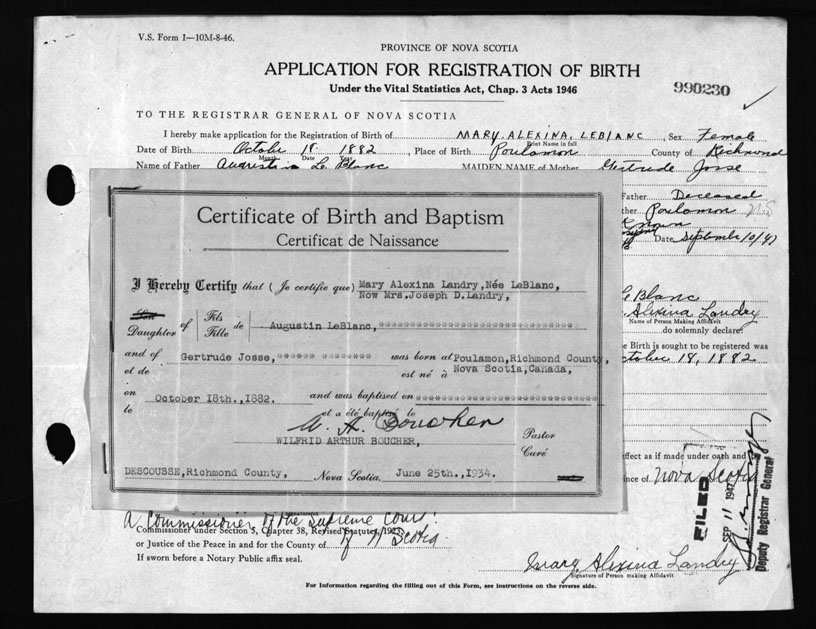 V.S. Form 1—10M-8-46.
PROVINCE OF NOVA SCOTIA
APPLICATION FOR REGISTRATION OF BIRTH
Under the Vital Statistics Act, Chap. 3 Acts 1946
990230
TO THE REGISTRAR GENERAL OF NOVA SCOTIA
I hereby make application for the Registration of Birth of MARY ALEXINA LEBLANC, Sex Female
Print Name in full
Date of Birth October 18 1882, Place of Birth Poulamon County of Richmond
Month Date Year
Name of Father Augustin Le Blanc MAIDEN NAME of Mother Gertrude Josse
Father Deceased
ther Poulamon
Date September 10/47
Certificate of Birth and Baptism
Certificat de Naissance
I Hereby Certify that (Je certifie que) Mary Alexina Landry, Née LeBlanc,
Now Mrs. Joseph D. Landry,
Son
Daughter of Fils
Fille de Augustin LeBlanc, ****************************
and of Gertrude Josse, ****** ******** was born at Poulamon, Richmond County,
et de est né à Nova Scotia, Canada,
on October 18th., 1882. and was baptised on **********************
le et a été baptisé le
W. A. Boucher
WILFRID ARTHUR BOUCHER, Pastor
Curé
DESCOUSSE, Richmond County, Nova Scotia. June 25th., 1934.
Le Blanc
Alexina Landry
Name of Person Making Affidavit
do solemnly declare:
e Birth is sought to be registered was
ctober 18, 1882
ffect as if made under oath and
nce of Nova Scotia
FILED
SEP 11 1947
Deputy Registrar General
A Commissioner of the Supreme Court
Commissioner under Section 5, Chapter 38, Revised Statutes, 19
or Justice of the Peace in and for the County of of N Scotia
If sworn before a Notary Public affix seal.
Mary Alexina Landry
Signature of Person making Affidavit
For Information regarding the filling out of this Form, see instructions on the reverse side.